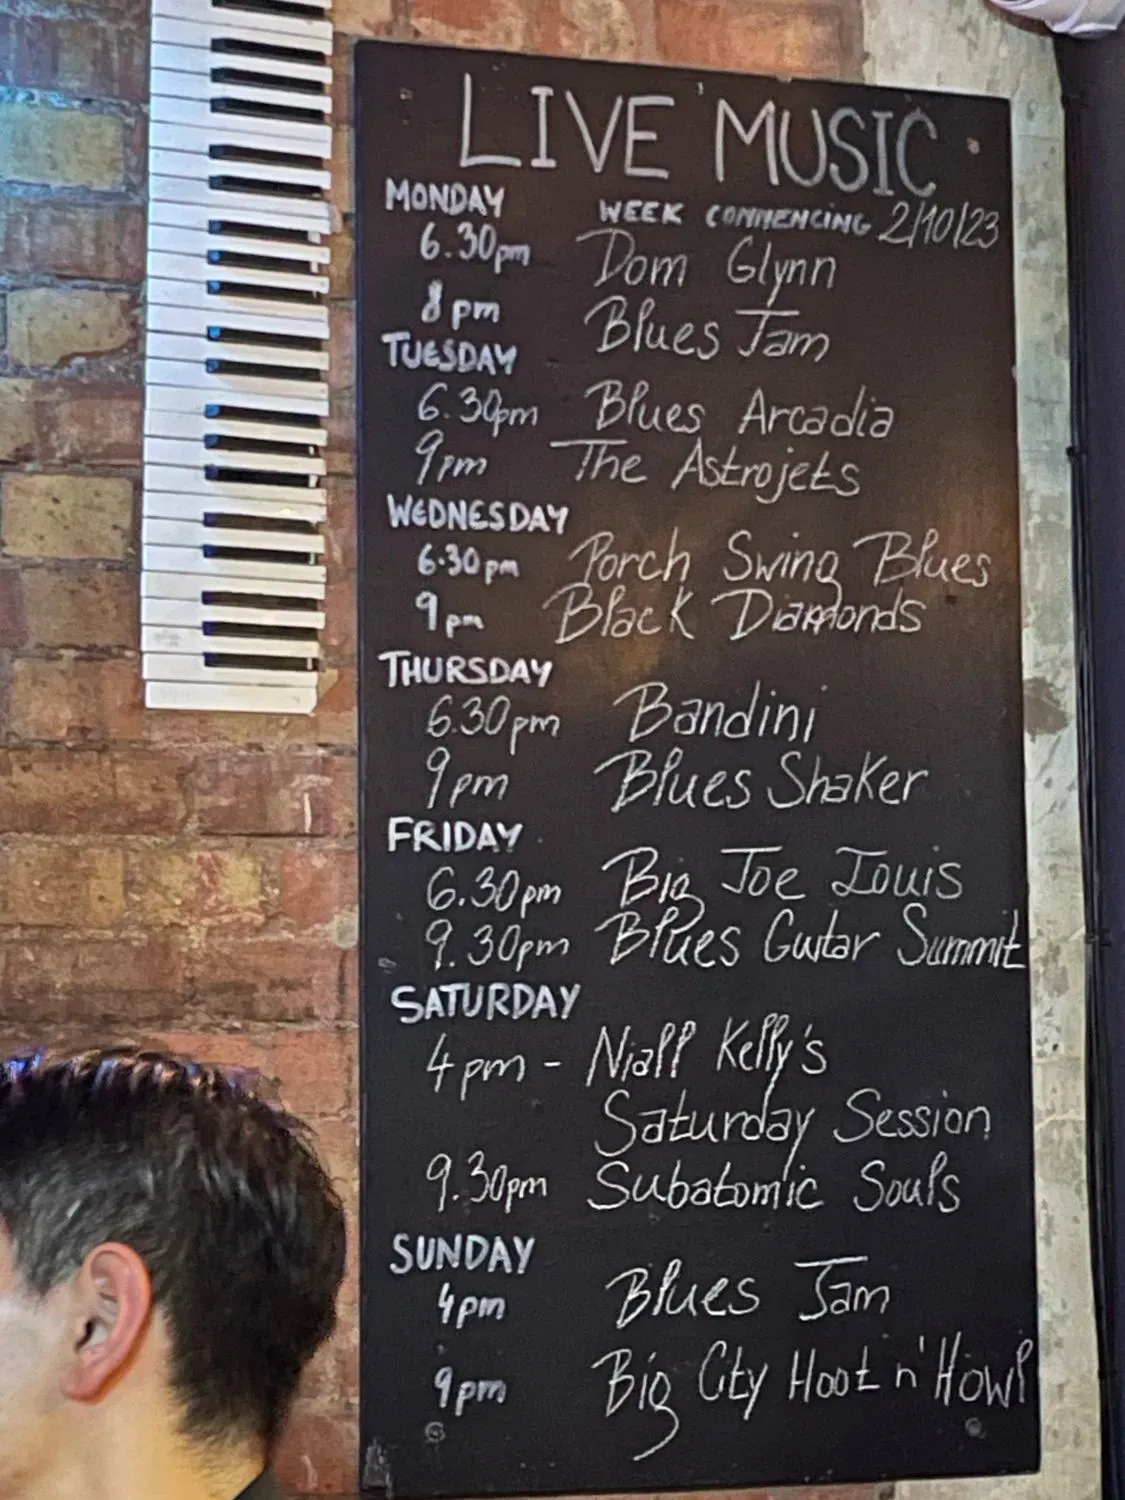 LIVE MUSIC
MONDAY WEEK COMMENCING 2/10/23
6.30pm Dom Glynn
8pm Blues Jam
TUESDAY
6.30pm Blues Arcadia
9pm The Astrojets
WEDNESDAY
6.30pm Porch Swing Blues
9pm Black Diamonds
THURSDAY
6.30pm Bandini
9pm Blues Shaker
FRIDAY
6.30pm Big Joe Louis
9.30pm Blues Guitar Summit
SATURDAY
4pm - Niall Kelly's
Saturday Session
9.30pm Subatomic Souls
SUNDAY
4pm Blues Jam
9pm Big City Hoot n' Howl